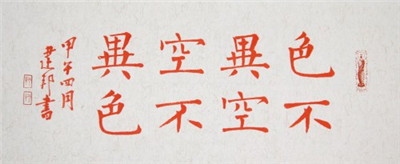 色不
異空
空不
異色
甲午四月
尹建邦書